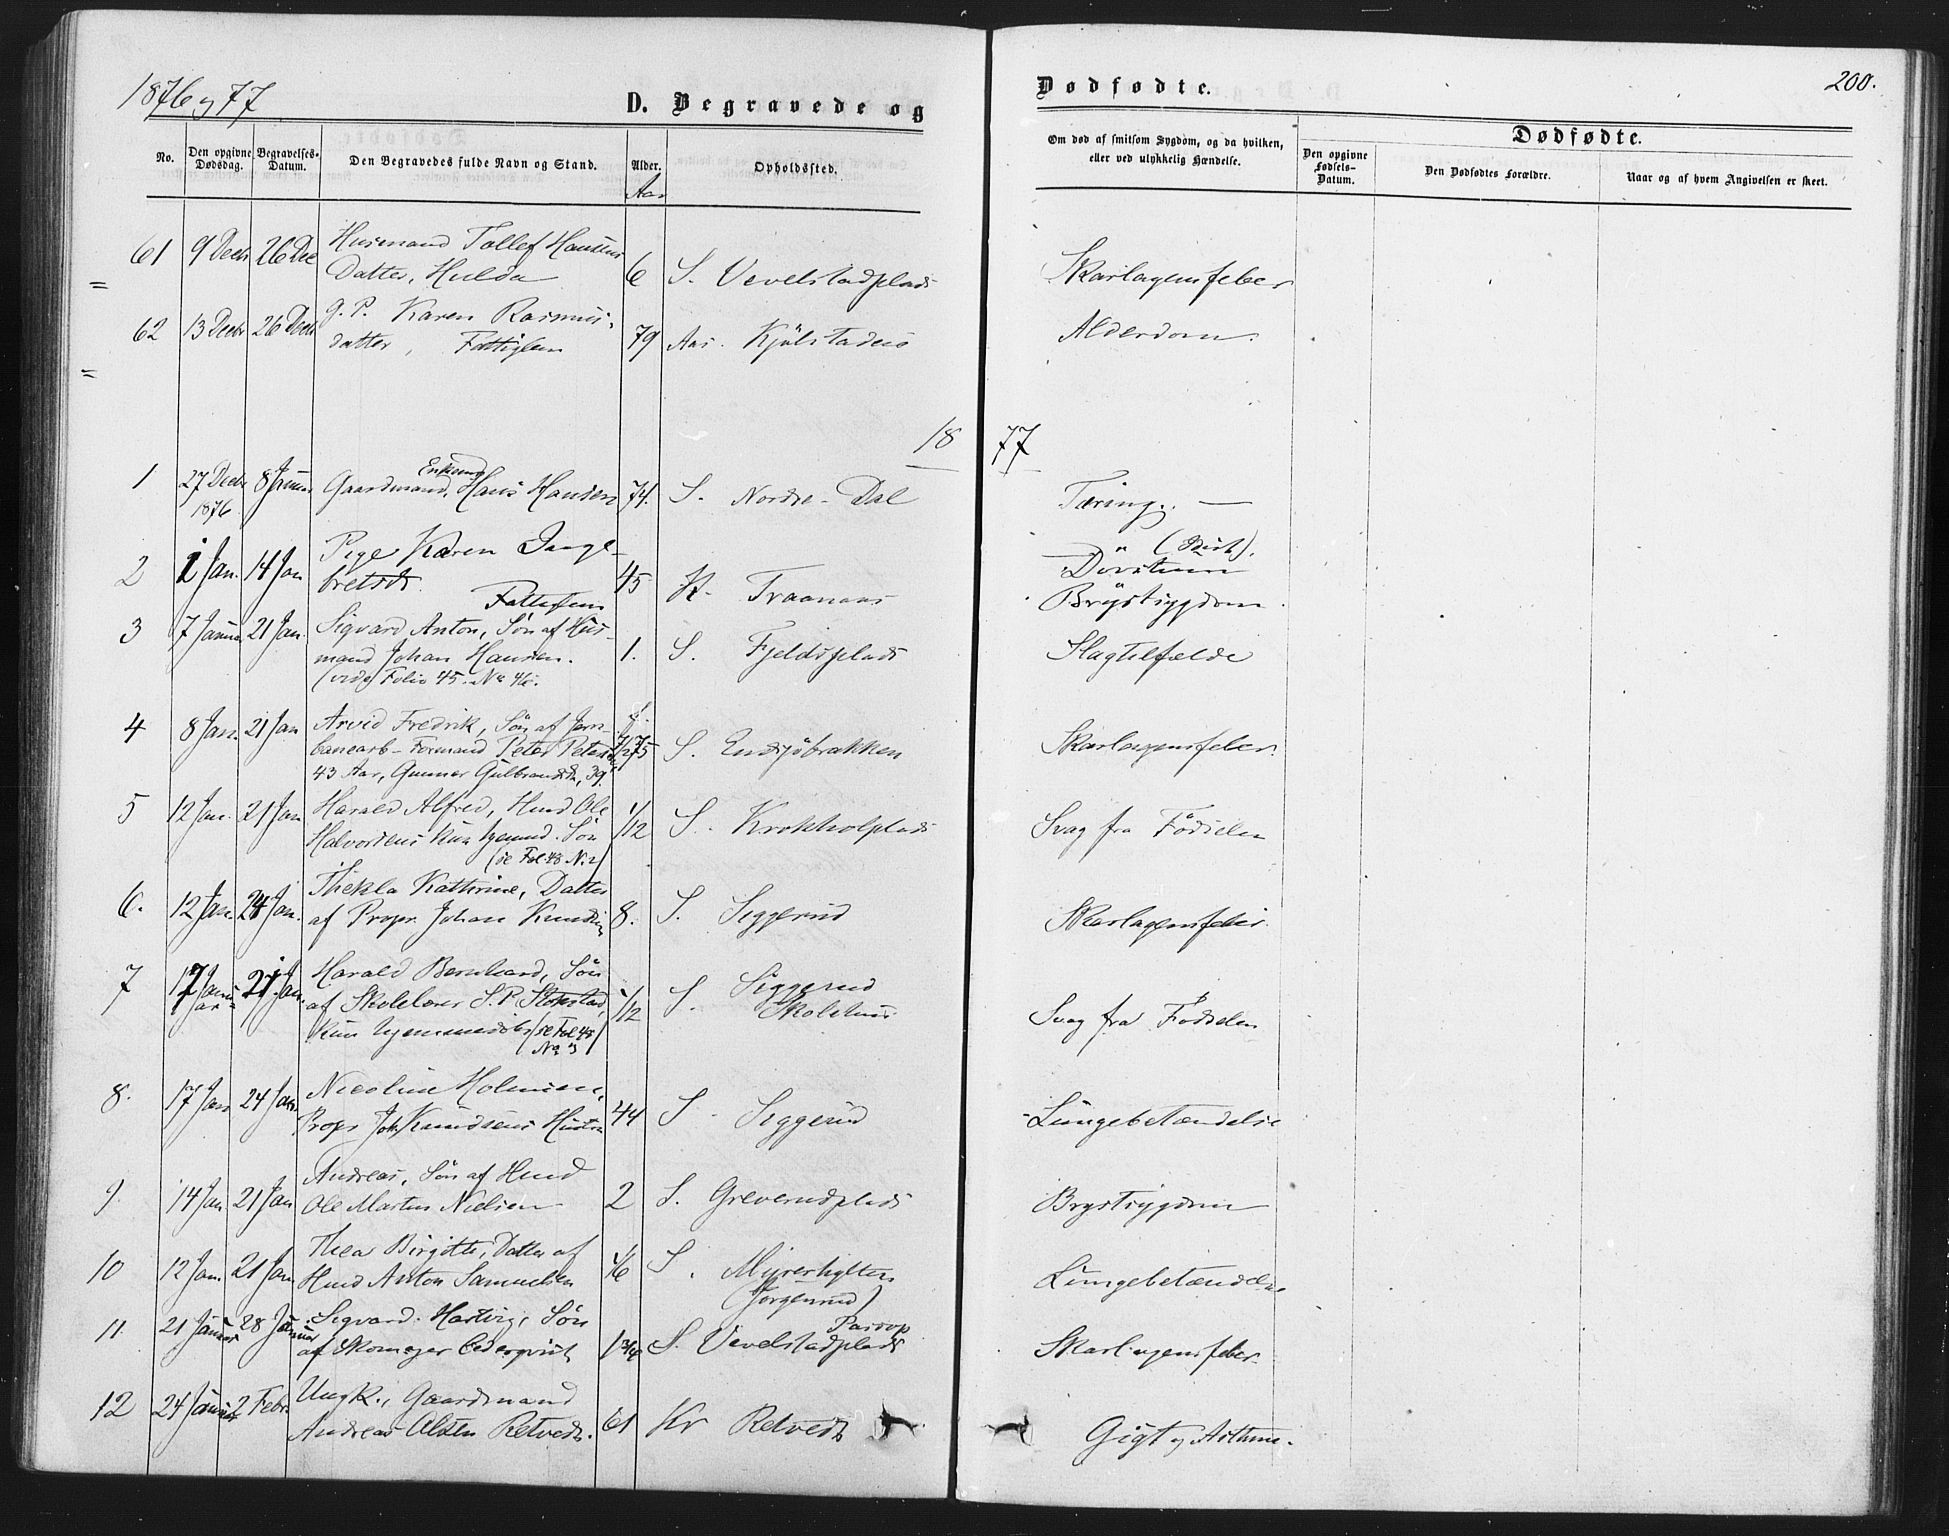 1876 og 77
D. Begravede og
Dødfødte.
200.
No.
Den opgivne Dødsdag.
Begravelses-Datum.
Den Begravedes fulde Navn og Stand.
Alder.
Aar
Opholdssted.
Om død af smitsom Sygdom, og da hvilken,
eller ved ulykkelig Hændelse.
Dødfødte.
Den opgivne Fødsels-Datum.
Den Dødfødtes Forældre.
Naar og af hvem Angivelsen er skeet.
61 9 Decbr 26 Dec Husmand Tollef Hansens
Datter, Hulda 6 S. Vevelstadplads Skarlagensfeber
62 13 Decbr 26 Decbr g. P. Karen Rasmus-
datter, Fattiglem 79 Aas. Kjølstadeie Alderdom.
18 77
1 27 Decbr 1876 8 Januar Enkemd
Gaardmand, Hans Hansen 74. S. Nordre-Dal Tæring. —
2 1 Jan. 14 Jan Pige Karen Inge-
bretsdt. 45 Kr. Traanaas
Fattiglem Brystsygdom.
3 7 Januar 21 Jan. Sigvard Anton, Søn af Hus-
mand Johan Hansen. 1. S. Fjeldsplads Slagtilfælde
(vide Folio 45. No 46.
4 8 Jan. 21 Jan Arvid Fredrik, Søn af Jern-
banearb-Formand Peter S. Skarlagensfeber
43 Aar, Gunner 39
5 12 Jan. 21 Jan Harald Alfred, Husmd Ole
Halvorsens kun hjemmd. Søn 1/12 S. Krokholplads Svag fra Fødselen
(se Fol 48 No 2)
6. 12 Jan. 24 Jan. Thekla Kathrine, Datter
af Propr. Johan 8. S. Siggerud Skarlagensfeber.
7 17 Januar 21 Jan. Harald Bernhard, Søn
af Skolelærer S. P. 1/12 S. Siggerud Skolehus Svag fra Fødselen
kun hjemmedøbt (se Fol 48
No 3)
8. 17 Jan 24 Jan. Nicoline Holmsen,
Propr Joh Knudsens Hustru 44 S. Siggerud Lungebetændelse
9. 14 Jan 21 Jan Andreas, Søn af Husmd
Ole Martin Nielsen 2 S. Greverudplads Brystsygdom
10 12 Jan. 21 Jan Thea Birgitte, Datter af
Husmd Anton Samuelsen S. Myrerhytten Lungebetændelse
11. 21 Januar 28 Januar Sigvard Hartvig, Søn
af Skomager Cederqvist 1 3/4 S. Vevelstadplads Skarlagensfeber.
12 24 Januar 2 Febr. Ungk., Gaardmand
Andreas Olsen Retvedt. 61 Kr Retvedt Gigt og Asthma.